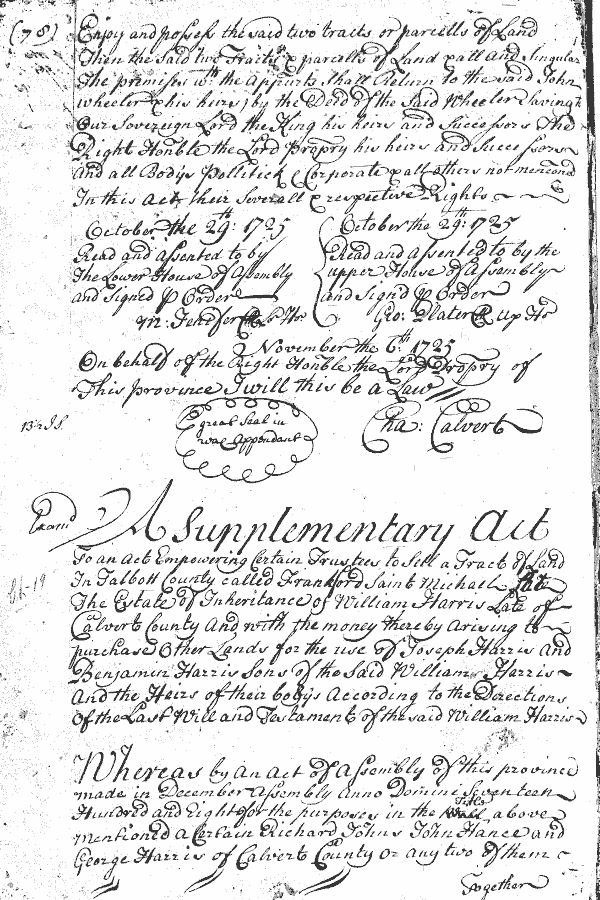 (78)
Enjoy and possess the said two tracts or parcells of Land
Then the said two Tracts & parcells of Land & all and Singular
The premises wth. the Appurts. shall Return to the said John
wheeler & his heirs, by the Deed of the Said Wheeler Saving to
Our Sovereign Lord the King his heirs and Successors The
Right Honble the Lord Propry his heirs and Successors
And all Bodys Pollitick & Corporate & all others not mencond
In this act, their Severall & respective Rights
October the 29th: 1725
Read and assented to by
the Lower House of Assembly
and Signed P Order
M: Jenifer Cl. Lo. Ho.
October the 29th: 1725
Read and assented to by the
upper House of Assembly
and Signd P Order
Geo: Plater Cl. up Ho
November the 6th: 1725
On behalf of the Right Honble the Lord Propry of
This province I will this be a Law
great Seal in
wax Appendant
Cha: Calvert
Examd
A Supplementary Act
To an act Empowering Certain Trustees to Sell a Tract of Land
In Talbott County called Frankford Saint Michael
The Estate of Inheritance of William Harris Late of
Calvert County And with the money thereby arising to
purchase Other Lands for the use of Joseph Harris and
Benjamin Harris Sons of the Said William Harris
And the Heirs of their bodys According to the Directions
Of the Last Will and Testament of the said William Harris
Whereas by an act of Assembly of this province
made in December Assembly anno Domini Seventeen
Hundred and Eight for the purposes in the Title above
mentioned a Certain Richard Johns John Hance and
George Harris of Calvert County or any two of them
Together